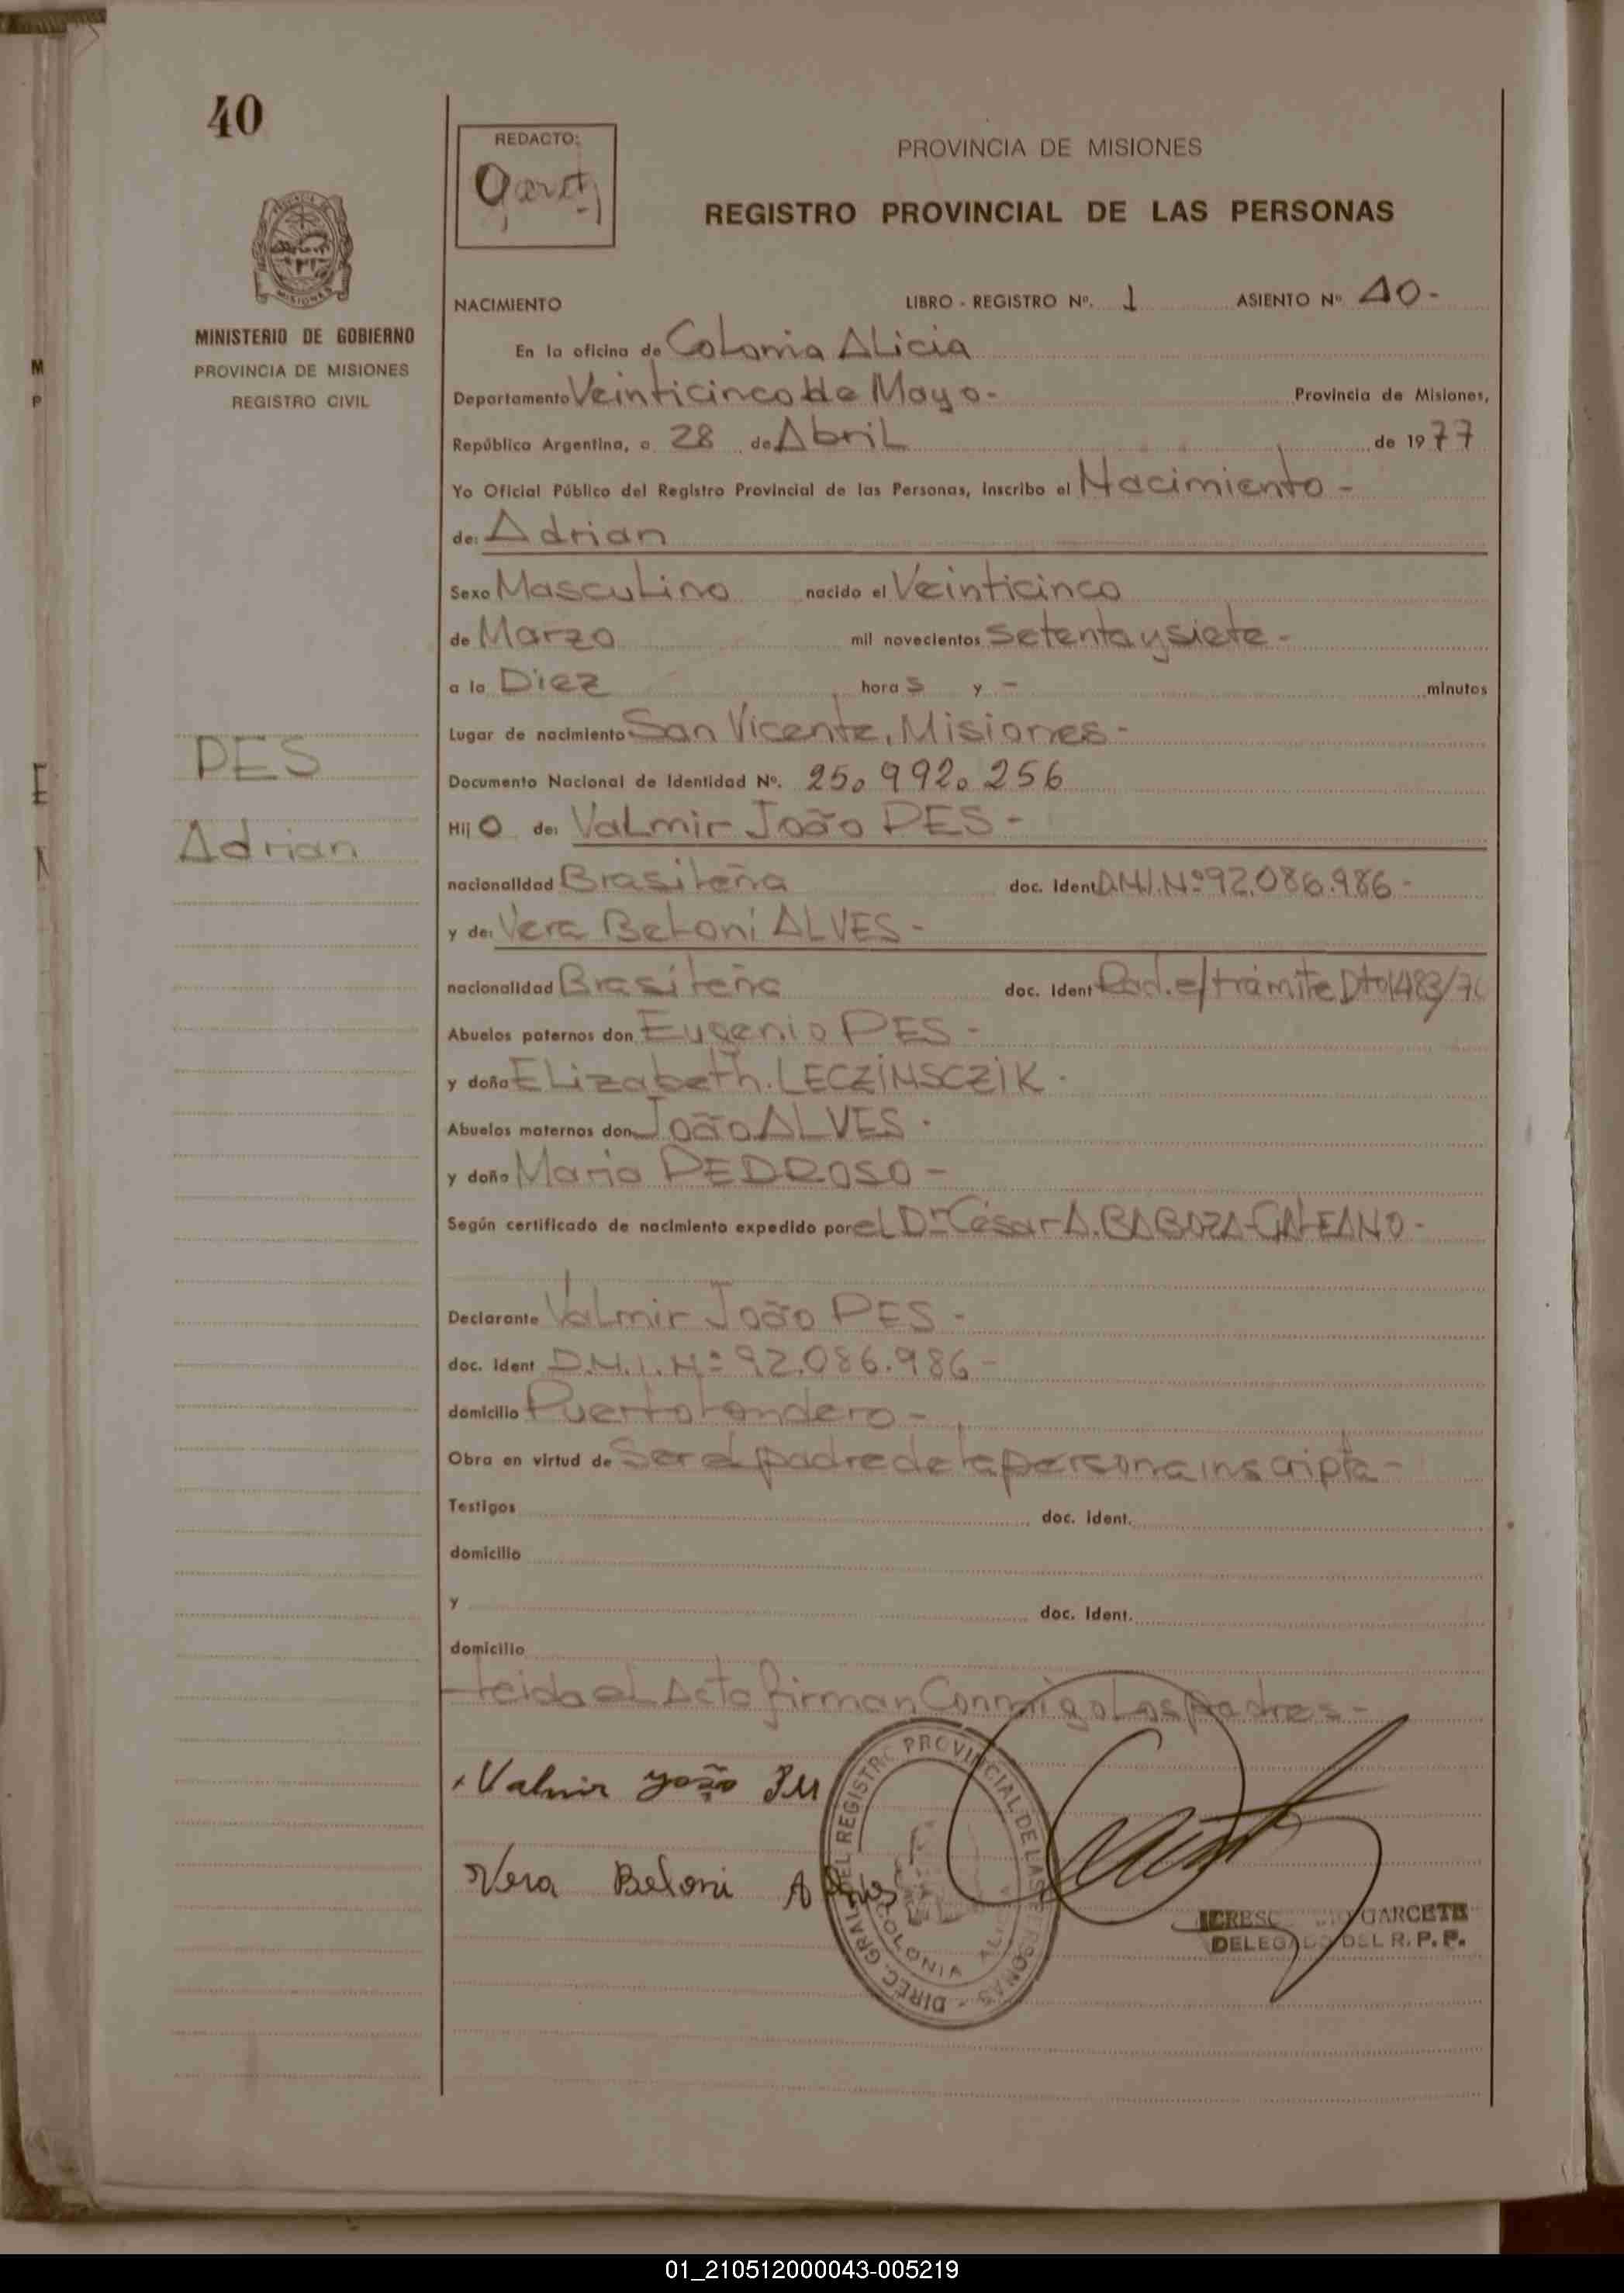 40
REDACTO:
PROVINCIA DE MISIONES
REGISTRO PROVINCIAL DE LAS PERSONAS
MINISTERIO DE GOBIERNO
PROVINCIA DE MISIONES
REGISTRO CIVIL
NACIMIENTO LIBRO - REGISTRO Nº. 1 ASIENTO Nº 40-
En la oficina de Colonia Alicia
Departamento Veinticinco de Mayo- Provincia de Misiones,
República Argentina, a 28 de Abril de 1977
Yo Oficial Público del Registro Provincial de las Personas, inscribo el Nacimiento-
de: Adrian
Sexo Masculino nacido el Veinticinco
de Marzo mil novecientos Setenta y siete-
a la Diez horas y - minutos
Lugar de nacimiento San Vicente, Misiones-
Documento Nacional de Identidad Nº. 25.992.256
Hijo de: Valmir João PES-
nacionalidad Brasileña doc. Ident D.N.I.Nº92.086.986-
y de: Vera Beloni ALVES-
nacionalidad Brasileña doc. Ident Rad. e/trámite Dto1483/7
Abuelos paternos don Eugenio PES-
y doña Elizabeth. LECZINSCZIK-
Abuelos maternos don João ALVES.
y doña Maria PEDROSO-
Según certificado de nacimiento expedido por el Dr. César A. BABOZA GALEANO-
Declarante Valmir João PES-
doc. Ident D.N.I. Nº 92.086.986-
domicilio Puerto Londero-
Obra en virtud de Ser el padre de la persona inscripta-
Testigos doc. Ident.
domicilio
y doc. Ident.
domicilio
Leida el Acta firman Conmigo Los padres-
PES
Adrian
Valmir João
Vera Beloni Alves
DIREC. GRAL. DEL REGISTRO PROVINCIAL DE LAS PERSONAS -
COLONIA ALICIA
GARCETE
DELEGADO DEL R. P. P.
M
P
E
N
01_210512000043-005219